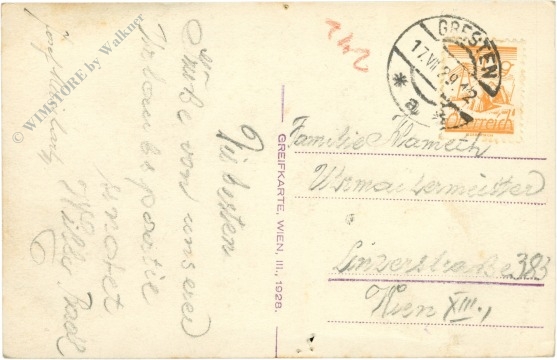 Die besten
Grüße von unserer
Urlaubspartie
sendet
© WIMSTORE by Walkner
GREIFKARTE, WIEN, III., 1928.
142
GRESTEN
17.VII.29.12
* a *
Österreich
Familie
Uhrmachermeister
Linzerstraße 383
Wien XIII.,